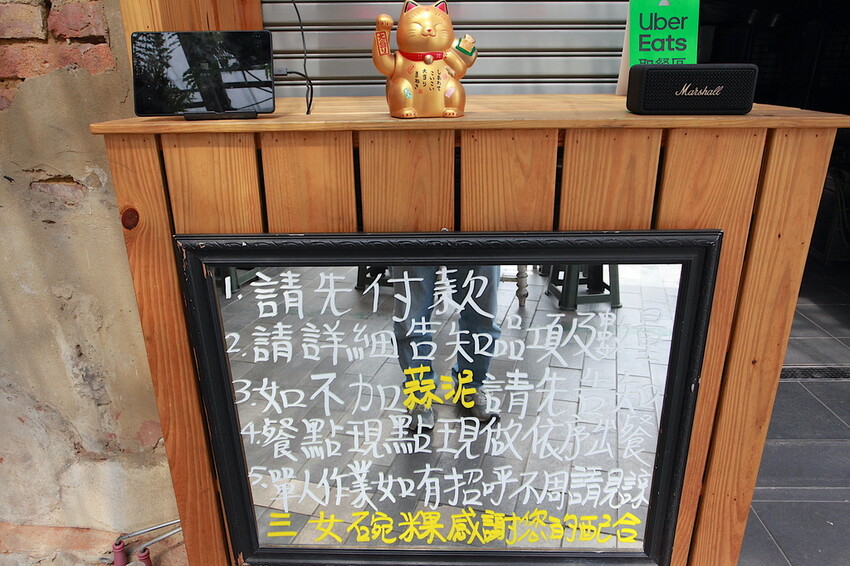 Uber
Eats
Marshall
1.請先付款
2.請詳細告知品項及數量
3.如不加蒜泥請先告知
4.餐點現點現做依序出餐
5.單人作業如有招呼不周請見諒
三女碗粿感謝您的配合